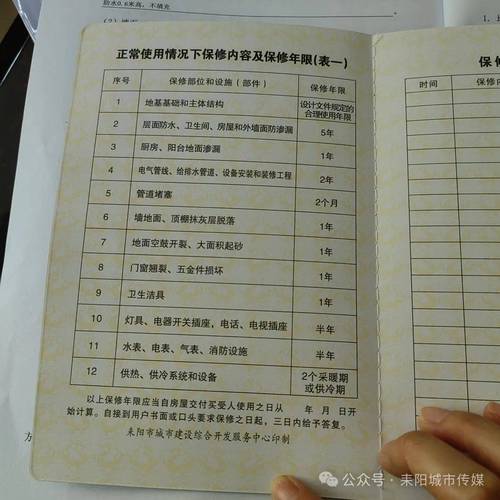 防水0.6米高，不填充
正常使用情况下保修内容及保修年限(表一)
序号 保修部位和设施（部件） 保修年限
1 地基基础和主体结构 设计文件规定的合理使用年限
2 层面防水、卫生间、房屋和外墙面防渗漏 5年
3 厨房、阳台地面渗漏 1年
4 电气管线、给排水管道、设备安装和装修工程 2年
5 管道堵塞 2个月
6 墙地面、顶棚抹灰层脱落 1年
7 地面空鼓开裂、大面积起砂 1年
8 门窗翘裂、五金件损坏 1年
9 卫生洁具 1年
10 灯具、电器开关插座，电话、电视插座 半年
11 水表、电表、气表、消防设施 半年
12 供热、供冷系统和设备 2个采暖期或供冷期
以上保修年限应当自房屋交付买受人使用之日从 年 月 日开
始计算。自接到用户书面或口头要求保修之日起，三日内给予答复。
耒阳市城市建设综合开发服务中心印制
保修
时间 保修内
公众号·耒阳城市传媒